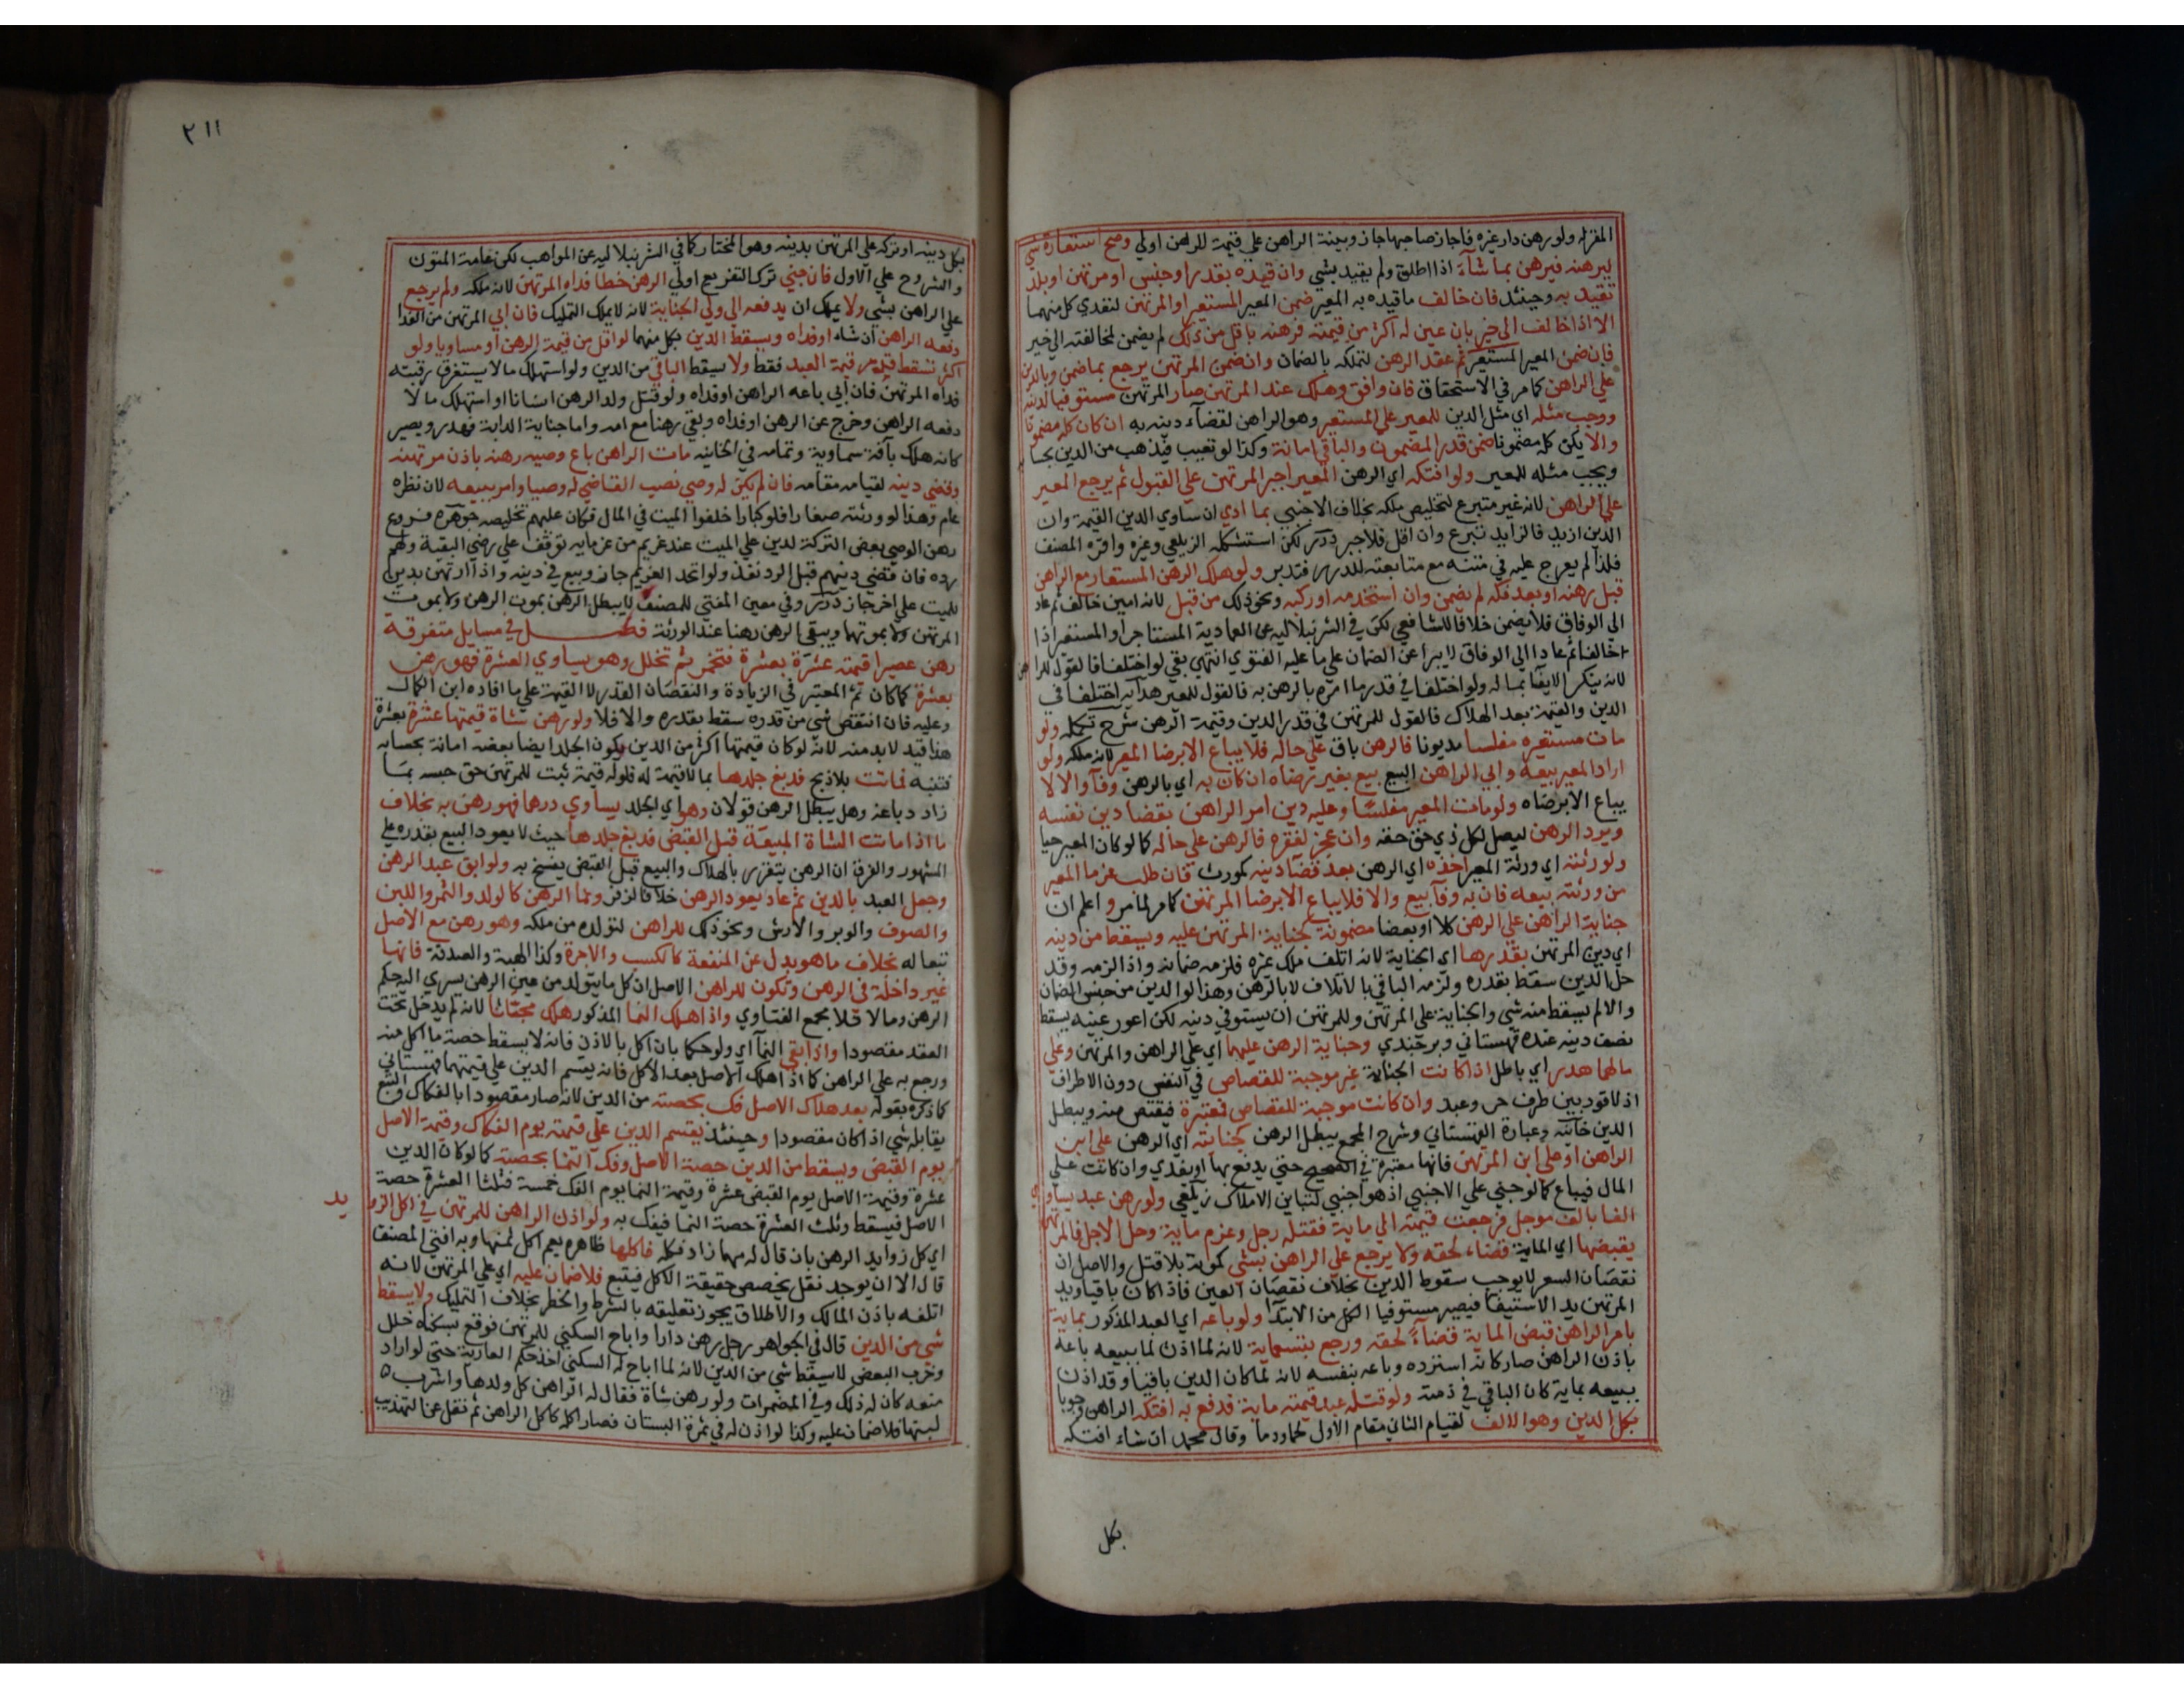 المقرله ولو رهن دار غيره فاجاز صاحبها جاز وبينة الراهن علي قيمة للرهن اولي وصح استعارة شي
ليرهنه فيرهن بما شآء اذا اطلق ولم يقيد بشي وان قيده بقدر او جنس او مرتهن او بلد
تقيد به وحينئذ فان خالف ما قيده به المعير ضمن المعير المستعير او المرتهن لتعدي كل منهما
الا اذا خالف الي خير بان عين له اكثر من قيمته فرهنه باقل من ذلك لم يضمن لمخالفته الي خير
فان ضمن المعير المستعير تم عقد الرهن لتملكه بالضمان وان ضمن المرتهن يرجع بما ضمن وبالدين
علي الراهن كما مر في الاستحقاق فان وافق وهلك عند المرتهن صار المرتهن مستوفيا لدينه
ووجب مثله اي مثل الدين للمعير علي المستعير وهو الراهن لقضآء دينه به ان كان كله مضمونا
والا يكن كله مضمونا ضمن قدر المضمون والباقي امانة وكذا لو تعيب فيذهب من الدين بحسابه
ويجب مثله للمعير ولو افتكه اي الرهن المعير اجبر المرتهن علي القبول ثم يرجع المعير
علي الراهن لانه غير متبرع لتخليص ملكه بخلاف الاجنبي بما ادي ان ساوي الدين القيمة وان
الدين ازيد فالزايد تبرع وان اقل فلا جبر درر لكن استشكله الزيلعي وغيره واقره المصنف
فلذا لم يعرج عليه في متنه مع متابعته للدرر فتدبر ولو هلك الرهن المستعار مع الراهن
قبل رهنه او بعد فكه لم يضمن وان استخدمه او ركبه ونحو ذلك من قبل لانه امين خالف ثم عاد
الي الوفاق فلا يضمن خلافا للشافعي لكن في الشرنبلاليه عن العمادية المستاجر او المستعير اذا
خالفا ثم عادا الي الوفاق لا يبرا عن الضمان علي ما عليه الفتوي انتهي بقي لو اختلفا فالقول للراهن
لانه ينكر الايفآ بماله ولو اختلفا في قدر ما امره بالرهن به فالقول للمعير هدايه اختلفا في
الدين والقيمة بعد الهلاك فالقول للمرتهن في قدر الدين وقيمة الرهن شرح تكمله ولو
مات مستعيره مفلسا مديونا فالرهن باق علي حاله فلا يباع الا برضا المعير لانه ملكه ولو
اراد المعير بيعه وابي الراهن البيع بيع بغير رضاه ان كان به اي بالرهن وفآء والا لا
يباع الا برضاه ولو مات المعير مفلسا وعليه دين امر الراهن بقضا دين نفسه
ويرد الرهن ليصل لكل ذي حق حقه وان عجز لفقره فالرهن علي حاله كما لو كان المعير حيا
ولورثته اي ورثة المعير اخذه اي الرهن بعد قضآ دينه كمورث فان طلب غرما المعير
من ورثته بيعه فان به وفآ بيع والا فلا يباع الا برضا المرتهن كما مر لما مر واعلم ان
جناية الراهن علي الرهن كلا او بعضا مضمونة كجناية المرتهن عليه ويسقط من دينه
اي دين المرتهن بقدرها اي الجناية لانه اتلف ملك غيره فلزمه ضمانه واذا لزمه وقد
حل الدين سقط بقدره ولزمه الباقي بالاتلاف لا بالرهن وهذا لو الدين من جنس الضمان
والا لم يسقط منه شي والجناية علي المرتهن وللمرتهن ان يستوفي دينه لكن اعور عينه يسقط
نصف دينه عنده قهستاني وبرجندي وجناية الرهن عليهما اي علي الراهن والمرتهن وعلي
مالهما هدر اي باطل اذا كانت الجناية غير موجبة للقصاص في النفس دون الاطراف
اذ لا قود بين طرف حر وعبد وان كانت موجبة للقصاص فمعتبرة فيقتص منه ويبطل
الدين خانيه وعبارة القهستاني وشرح المجمع يبطل الرهن كجنايته اي الرهن علي ابن
الراهن او علي ابن المرتهن فانها معتبرة في الصحيح حتي يدفع بها او يفدي وان كانت علي
المال فيباع كما لو جني علي الاجنبي اذ هو اجنبي لتباين الاملاك زيلعي ولو رهن عبد يساوي
الفا بالف موجل فرجعت قيمته الي ماية فقتله رجل وغرم ماية وحل الاجل فالمرتهن
يقبضها اي الماية قضاء لحقه ولا يرجع علي الراهن بشي كموته بلا قتل والاصل ان
نقصان السعر لا يوجب سقوط الدين بخلاف نقصان العين فاذا كان باقيا ويد
المرتهن يد الاستيفآ فيصير مستوفيا الكل من الابتدآ ولو باعه اي العبد المذكور بماية
بامر الراهن قبض الماية قضآء لحقه ورجع بتسعماية لانه لما اذن لها ببيعه باعه
باذن الراهن صار كانه استرده وباعه بنفسه لانه لما كان الدين باقيا وقد اذن
ببيعه بماية كان الباقي في ذمته ولو قتله عبد قيمته ماية فدفع به افتكه الراهن وجوبا
بكل الدين وهو الالف لقيام الثاني مقام الاول لحما ودما وقال محمد ان شاء افتكه
بكل
٢١١
بكل دينه او تركه علي المرتهن بدينه وهو المختار كما في الشرنبلاليه عن المواهب لكن عامة المتون
والشروح علي الاول فان جني ترك التفريع اولي الرهن خطا فداه المرتهن لانه ملكه ولم يرجع
علي الراهن بشي ولا يملك ان يدفعه الي ولي الجناية لانه لا يملك التمليك فان ابي المرتهن من الفدا
دفعه الراهن ان شاء او فداه ويسقط الدين بكل منهما لو اقل من قيمة الرهن او مساويا ولو
اكثر يسقط قدر قيمة العبد فقط ولا يسقط الباقي من الدين ولو استهلك ما لا يستغرق رقبته
فداه المرتهن فان ابي باعه الراهن او فداه ولو قتل ولد الرهن انسانا او استهلك مالا
دفعه الراهن وخرج عن الرهن او فداه وبقي رهنا مع امه واما جناية الدابة فهدر ويصير
كانه هلك بآفة سماوية وتمامه في الخانيه مات الراهن باع وصيه رهنه باذن مرتهنه
وقضي دينه لقيامه مقامه فان لم يكن له وصي نصب القاضي له وصيا وامر ببيعه لان نظره
عام وهذا لو ورثته صغارا فلو كبارا خلفوا الميت في المال فكان عليهم تخليصه جوهره فروع
رهن الوصي بعض التركة لدين علي الميت عند غريم من غرمايه توقف علي رضي البقية ولهم
رده فان قضي دينهم قبل الرد نفذ ولو اتحد الغريم جاز وبيع في دينه واذا ارتهن بدين
للميت علي اخر جاز درر وفي معين المفتي للمصنف لا يبطل الرهن بموت الرهن ولا بموت
المرتهن ولا بموتهما ويبقي الرهن رهنا عند الورثة فصل في مسايل متفرقة
رهن عصيرا قيمته عشرة بعشرة فتخمر ثم تخلل وهو يساوي العشرة فهو رهن
بعشرة كما كان ثم المعتبر في الزيادة والنقصان القدر لا القيمة علي ما افاده ابن الكمال
وعليه فان انتقص شي من قدره سقط بقدره والا فلا ولو رهن شاة قيمتها عشرة بعشرة
هذا قيد لا بد منه لانه لو كان قيمتها اكثر من الدين يكون الجلد ايضا بعضه امانة بحسابه
فتنبه فماتت بلا ذبح فدبغ جلدها بما لا قيمة له فلو له قيمة ثبت للمرتهن حق حبسه بما
زاد دباغه وهل يبطل الرهن قولان وهو اي الجلد يساوي درهما فهو رهن به بخلاف
ما اذا ماتت الشاة المبيعة قبل القبض فدبغ جلدها حيث لا يعود البيع بقدره علي
المشهور والفرق ان الرهن يتقرر بالهلاك والبيع قبل القبض يفسخ به ولو ابق عبد الرهن
وجعل العبد بالدين ثم عاد يعود الرهن خلافا لزفر ونما الرهن كالولد والثمر واللبن
والصوف والوبر والارش ونحو ذلك للراهن لتولده من ملكه وهو رهن مع الاصل
تبعا له بخلاف ما هو بدل عن المنفعة كالكسب والاجرة وكذا الهبة والصدقة فانها
غير داخلة في الرهن وتكون للراهن الاصل ان كل ما يتولد من عين الرهن يسري اليه حكم
الرهن وما لا فلا مجمع الفتاوي واذا هلك النما المذكور هلك مجانا لانه لم يدخل تحت
العقد مقصودا واذا بقي النمآ اي ولو حكما بان اكل بالاذن فانه لا يسقط حصة ما اكل منه
ورجع به علي الراهن كما اذا هلك الاصل بعد الاكل فانه يقسم الدين علي قيمتهما قهستاني
كما ذكره بقوله بعد هلاك الاصل فك بحصته من الدين لانه صار مقصودا بالفكاك والتبع
يقابله شي اذا كان مقصودا وحينئذ يقسم الدين علي قيمته يوم الفكاك وقيمة الاصل
يوم القبض ويسقط من الدين حصة الاصل وفك النما بحصته كما لو كان الدين
عشرة وقيمة الاصل يوم القبض عشرة وقيمة النما يوم الفك خمسة فثلثا العشرة حصة
الاصل فيسقط وثلث العشرة حصة النما فيفك به ولو اذن الراهن للمرتهن في اكل الزوايد
اي كل زوايد الرهن بان قال له مهما زاد فكله فاكلها ظاهره يعم اكل ثمنها وبه افتي المصنف
قال الا ان يوجد نقل يخصص حقيقة الاكل فيتبع فلا ضمان عليه اي علي المرتهن لانه
اتلفه باذن المالك والاطلاق يجوز تعليقه بالشرط والخطر بخلاف التمليك ولا يسقط
شي من الدين قال في الجواهر رجل رهن دارا واباح السكني للمرتهن فوقع بسكناه خلل
وخرب البعض لا يسقط شي من الدين لانه لما اباح له السكني اخذ حكم العارية حتي لو اراد
منعه كان له ذلك وفي المضمرات ولو رهن شاة فقال له الراهن كل ولدها واشرب
لبنها فلا ضمان عليه وكذا لو اذن له في ثمرة البستان فصار اكله كاكل الراهن ثم نقل عن التهذيب